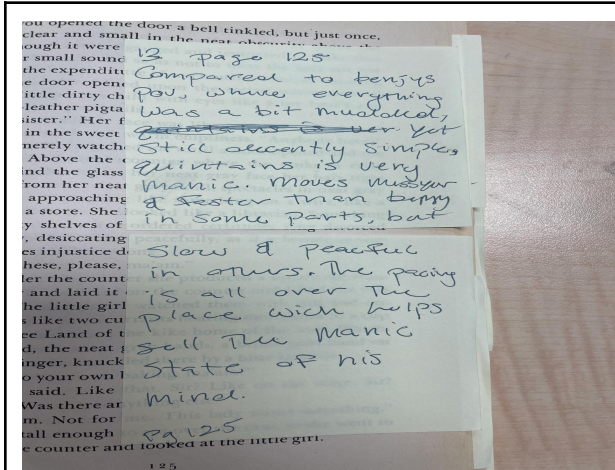 ou opened the door a bell tinkled, but just once,
clear and small in the neat obscurity above the
ough it were
r small sound
the expenditu
e door opene
ittle dirty ch
leather pigta
sister." Her f
in the sweet
merely watch
Above the
ind the glass
from her neat
approaching
a store. She
y shelves of
, desiccating
es injustice d
hese, please,
er the counter
and laid it
he little girl
s like two cu
ee Land of t
d, the neat
inger, knuck
o your own
said. Like
Was there an
m. Not for
tall enough
e counter and looked at the little girl.
125
13 page 125
Compared to benjys
POV, where everything
was a bit muddled,
quintains is ver yet
Still decently simple,
quintains is very
manic. moves messyer
& faster than benjy
in some parts, but
Slow & peaceful
in others. The pacing
is all over the
place wich helps
sell The manic
State of his
mind.
pg 125